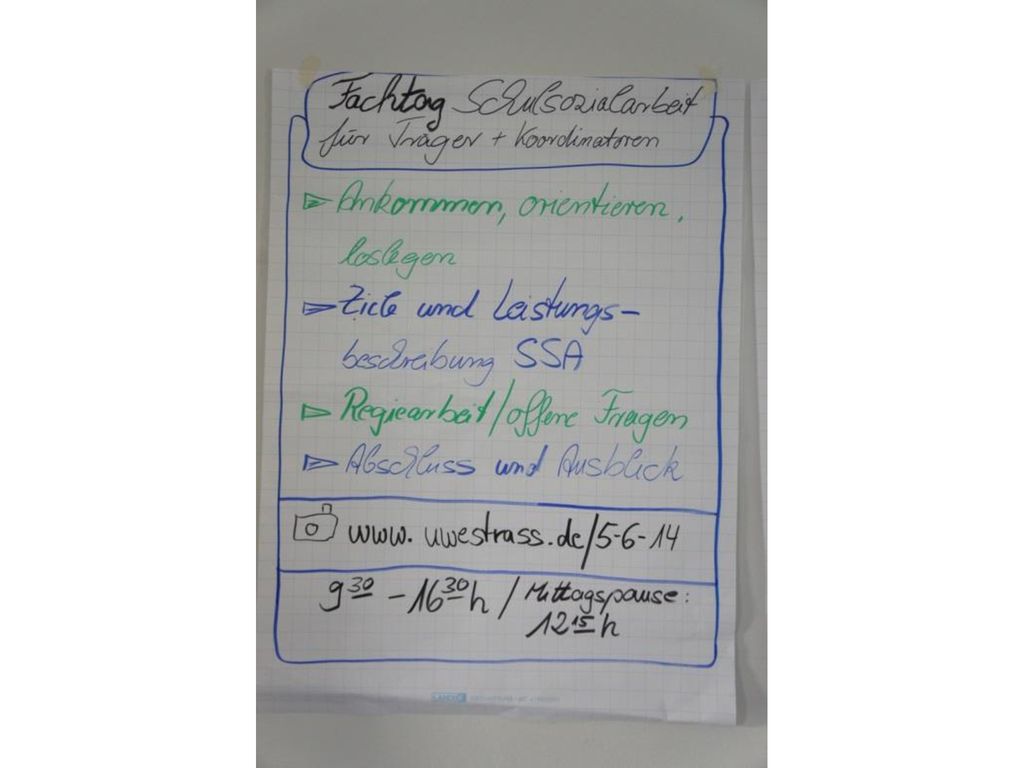 Fachtag Schulsozialarbeit
für Träger + Koordinatoren
Ankommen, orientieren,
loslegen
Ziele und Leistungs-
beschreibung SSA
Regiearbeit/offene Fragen
Abschluss und Ausblick
www.uwestrass.de/5-6-14
9 30 - 16 30 h / Mittagspause:
12 15 h